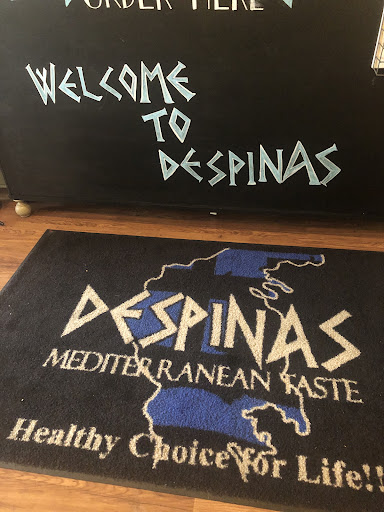 ORDER HERE
WELCOME
TO
DESPINAS
DESPINAS
MEDITERRANEAN TASTE
Healthy Choice for Life!!